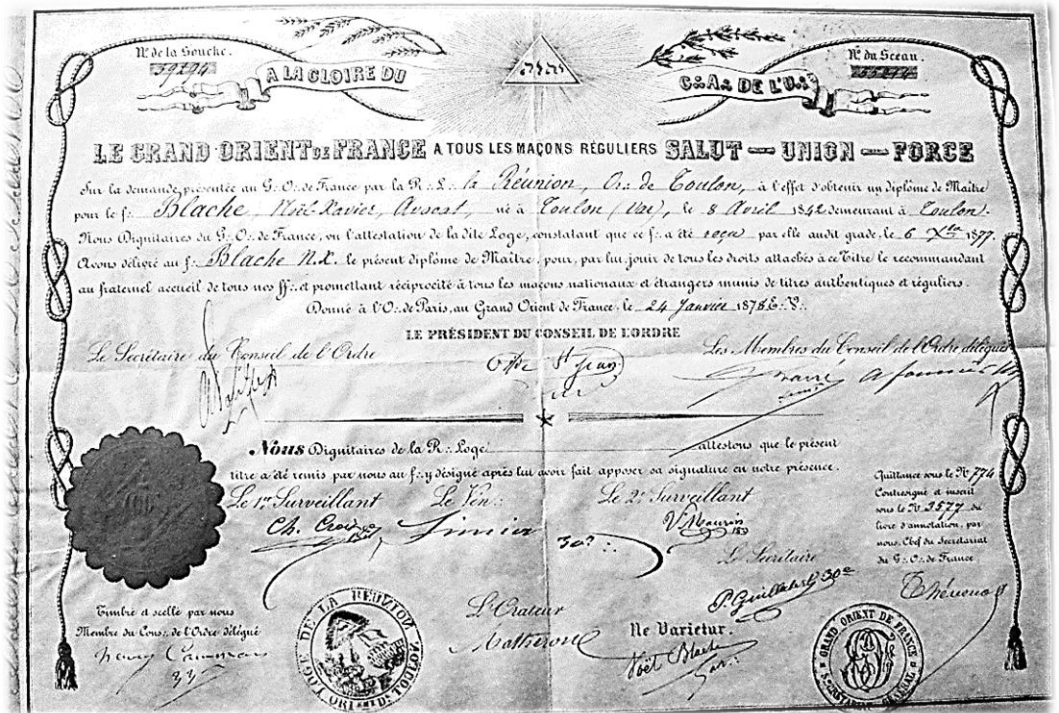 Nº de la Souche.
39294
A LA GLOIRE DU
יהוה
G∴A∴ DE L'U∴
Nº du Sceau.
LE GRAND ORIENT DE FRANCE A TOUS LES MAÇONS RÉGULIERS SALUT — UNION — FORCE
Sur la demande présentée au G∴O∴ de France par la R∴L∴ la Réunion, Or∴ de Toulon, à l'effet d'obtenir un diplôme de Maître
pour le f∴ Blache, Noël-Xavier, Avocat, né à Toulon (Var), le 8 Avril 1842 demeurant à Toulon.
Nous Dignitaires du G∴O∴ de France, vu l'attestation de la dite Loge, constatant que ce f∴ a été reçu par elle audit grade, le 6 Xbre 1877.
Avons délivré au f∴ Blache N.X. le présent diplôme de Maître, pour, par lui jouir de tous les droits attachés à ce titre le recommandant
au fraternel accueil de tous nos ff∴ et promettant réciprocité à tous les maçons nationaux et étrangers munis de titres authentiques et réguliers.
Donné à l'O∴ de Paris, au Grand Orient de France, le 24 Janvier 1878 E∴V∴
LE PRÉSIDENT DU CONSEIL DE L'ORDRE
Le Secrétaire du Conseil de l'Ordre
Les Membres du Conseil de l'Ordre délégués
St Jean
Nous Dignitaires de la R∴ Loge attestons que le présent
titre a été remis par nous au f∴ y désigné après lui avoir fait apposer sa signature en notre présence.
Le 1er Surveillant
Le Vén∴
Le 2e Surveillant
30e∴
V. Maurin
Quittance sous le Nº 774
Contresigné et inscrit
sous le Nº 3577 du
livre d'annotation, par
nous, Chef du Secrétariat
du G∴O∴ de France
Thévenot
Le Secrétaire
30e
Timbré et scellé par nous
Membre du Cons∴ de l'Ordre délégué
LOGE DE LA REUNION
ORIENT DE TOULON
L'Orateur
Matheron
Ne Varietur.
Noël Blache
GRAND ORIENT DE FRANCE
SECRETARIAT GENERAL